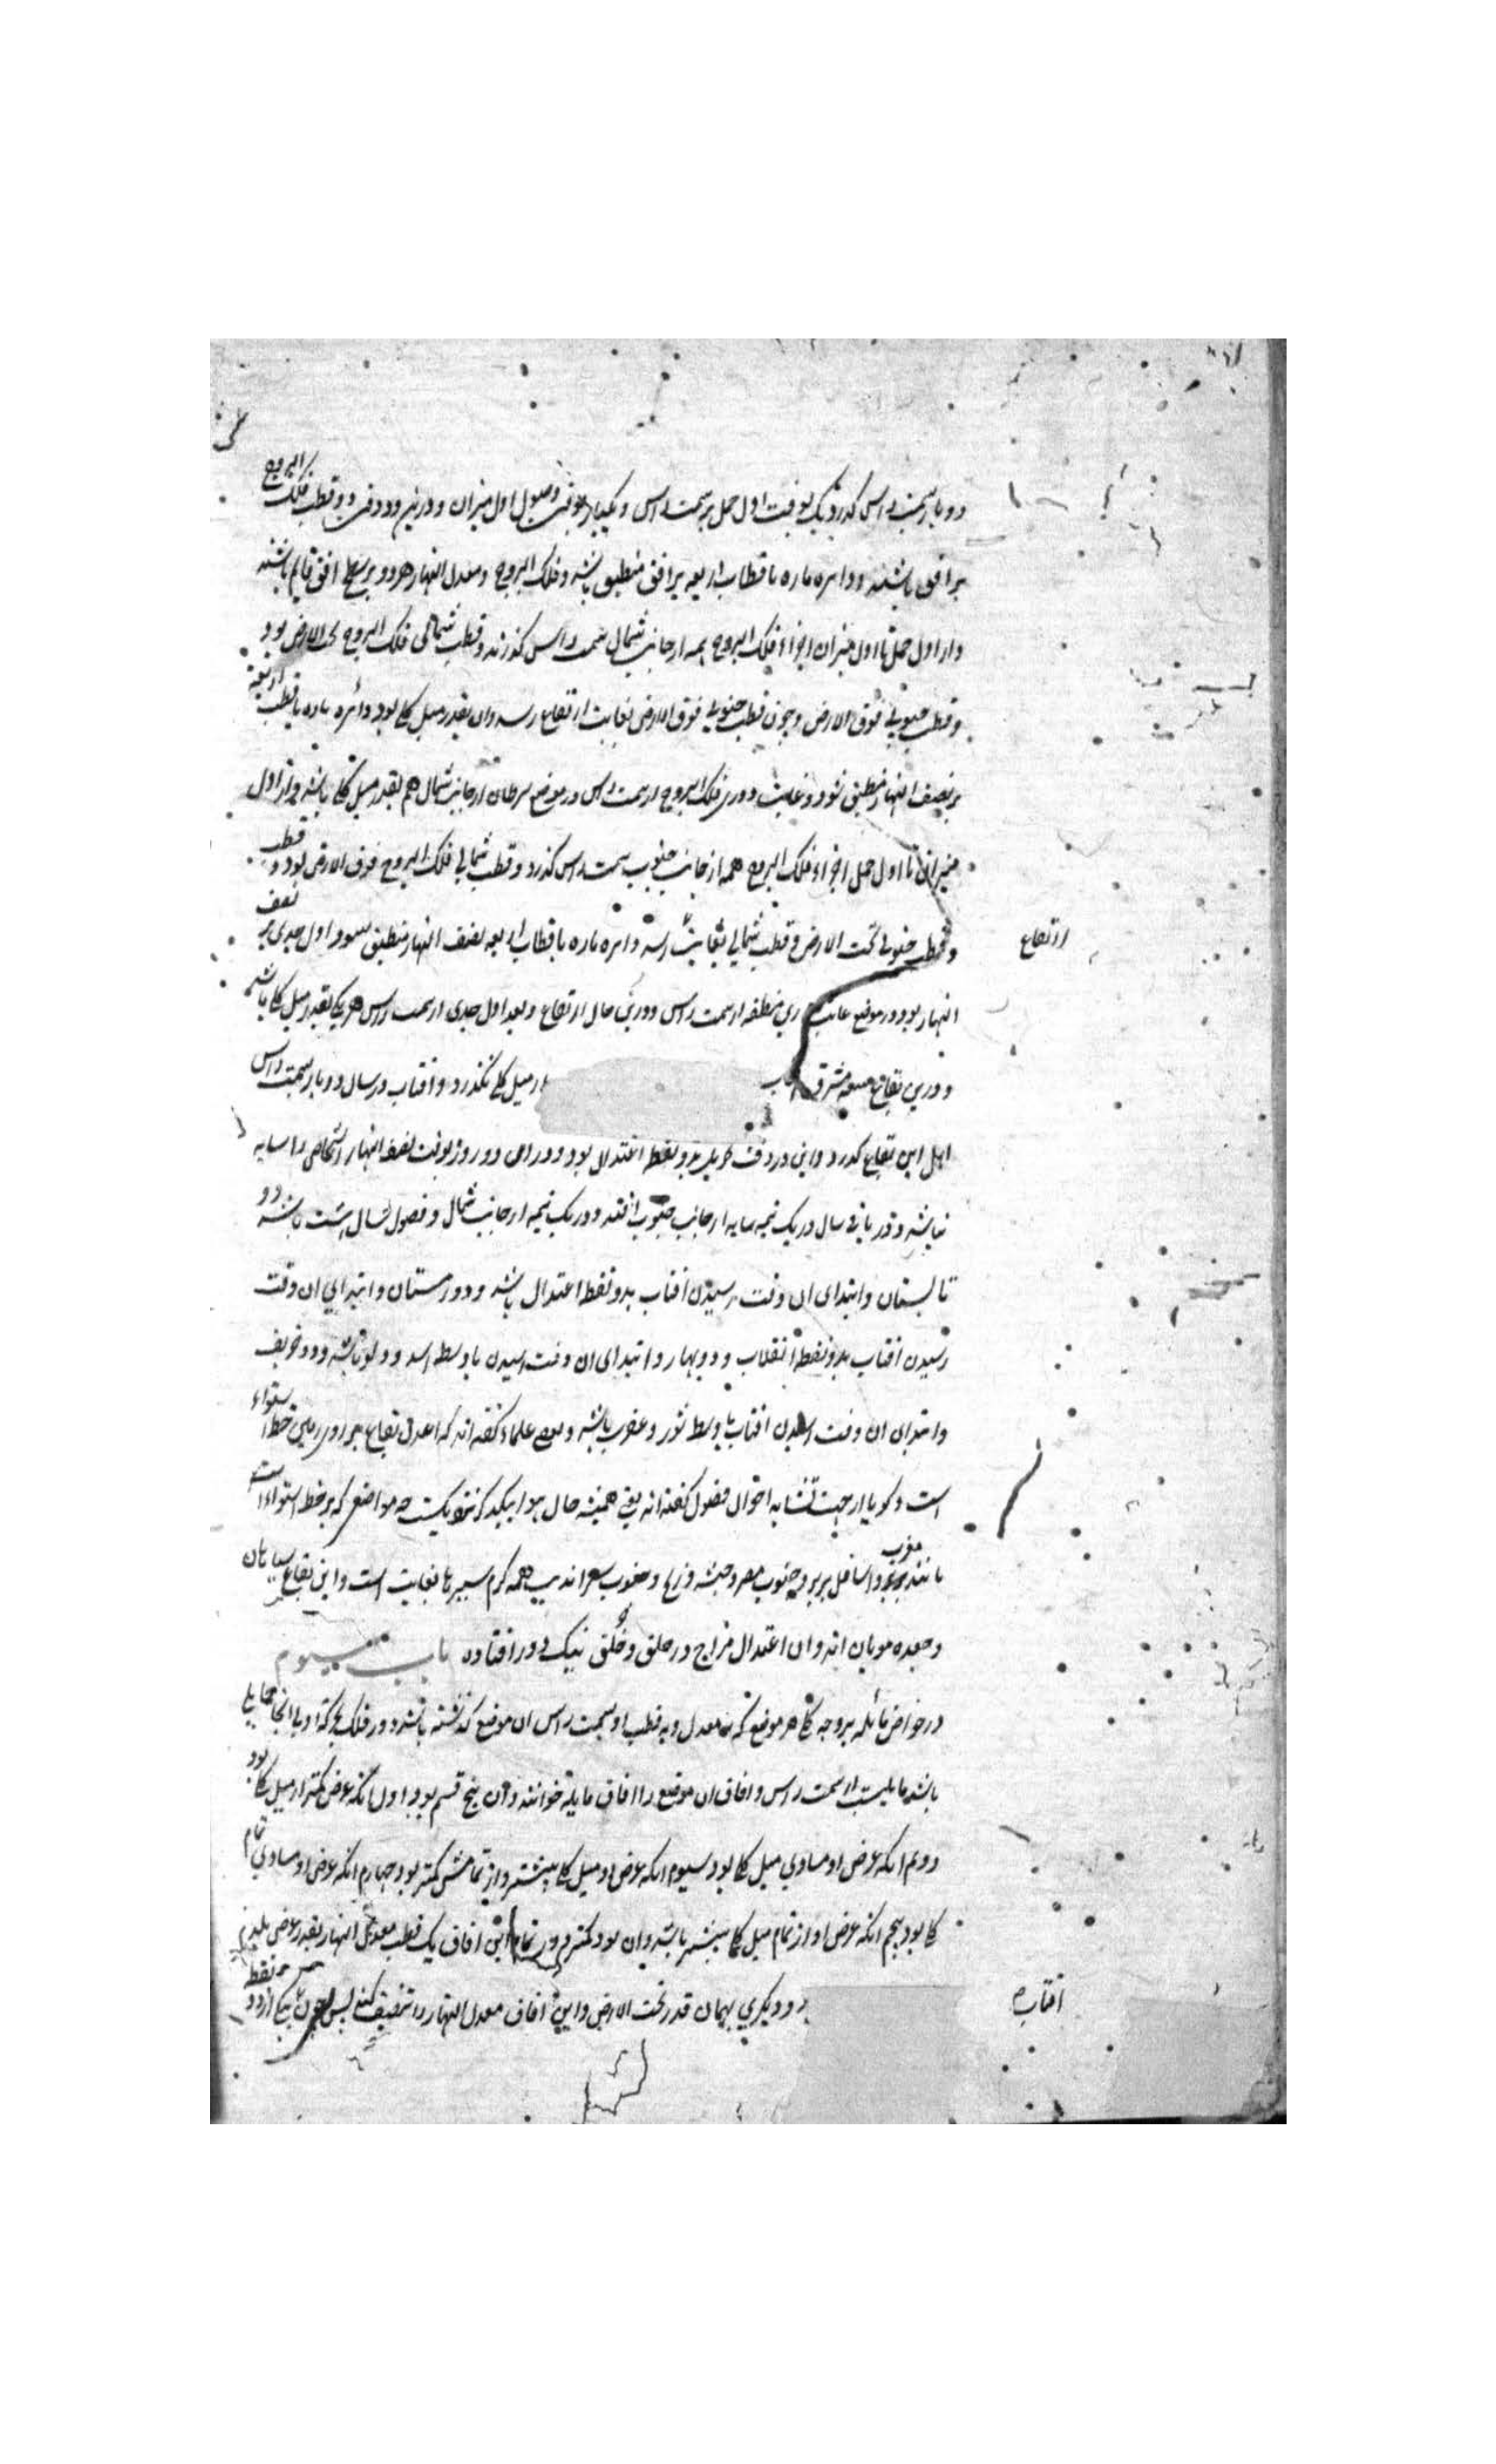 دو بار بسمت راس گذرد یک بوقت اول حمل بر سمت راس و یکبار بوقت وصول اول میزان و درین دو وقت دو قطب فلک البروج
بر افق باشند و دائره ماره باقطاب اربعه بر افق منطبق باشد و فلک البروج و معدل النهار هر دو بر سطح افق قایم باشند
و از اول حمل تا اول میزان اجزاء فلک البروج همه از جانب شمال سمت راس گذرند و قطب شمالی فلک البروج تحت الارض بود
و قطب جنوبی فوق الارض و چون قطب جنوبی فوق الارض بغایت ارتفاع رسد وان بقدر میل کلی بود دائره ماره باقطاب اربعه
بر نصف النهار منطبق شود و غایت دوری فلک البروج از سمت راس در موضع سرطان از جانب شمال هم بقدر میل کلی باشد و از اول
میزان تا اول حمل اجزاء فلک البروج همه از جانب جنوب سمت راس گذرد و قطب شمالی فلک البروج فوق الارض بود و قطب
جنوبی تحت الارض و قطب شمالی بغایت رسد دائره ماره باقطاب اربعه بنصف النهار منطبق شود اول جدی بر نصف
ارتفاع
النهار بود و در موضع غایت دوری منطقه از سمت راس و درین حال ارتفاع و بعد اول جدی از سمت راس هر یک بقدر میل کلی باشد
و درین بقاع سعه مشرق از میل کلی نگذرد و افتاب در سال دو بار بسمت راس
اهل این بقاع گذرد و این در وقت بدو نقطه اعتدال بود و دران دو روز بوقت نصف النهار اشخاص را سایه
نباشد و در باقی سال در یک نیمه سایه از جانب جنوب افتد و در یک نیمه از جانب شمال و فصول سال هشت باشد دو
تابستان و ابتدای ان وقت رسیدن افتاب بدو نقطه اعتدال باشد و دو زمستان و ابتدای ان وقت
رسیدن افتاب بدو نقطه انقلاب و دو بهار و ابتدای ان وقت رسیدن باوسط اسد و دلو باشد و دو خریف
و ابتدای ان وقت رسیدن افتاب باوسط ثور و عقرب باشد و بعضی علماء گفته اند که اعدل بقاع بر روی زمین خط استواء
است و گویا از جهت تشابه احوال فصول گفته اند یعنی همیشه حال هوا بیکدیگر نزدیکست چه مواضع که بر خط استواء است
مانند بربر مغرب و اسافل بربر و جنوب مصر و حبشه و زنج و جنوب سراندیب همه گرم سیر ها بغایت است و این بقاع سیاهان
و جعده مویان اند و ان اعتدال مزاج در خلق و خُلق نیک دور افتاده باب سیوم
در خواص مائله بر وجه کلی هر موضع که نه معدل و نه قطب او بسمت راس ان موضع گذشته باشد و در فلک
باشد مایلست از سمت راس و افاق ان موضع را افاق مایله خوانند و ان پنج قسم بود اول انکه عرض کمتر از میل کلی بود
دوم انکه عرض او مساوی میل کلی بود سیوم انکه عرض او میل کلی بیشتر و از تمامش کمتر بود چهارم انکه عرض او مساوی تمام
کلی بود پنجم انکه عرض او از تمام میل کلی بیشتر باشد وان بود کمتر و در تمام این افاق یک قطب معدل النهار بقدر عرض بلد
و دیگری بهمان قدر تحت الارض و این افاق معدل النهار را تنصیف کنند پس چون بیکی از دو نقطه
افتاب